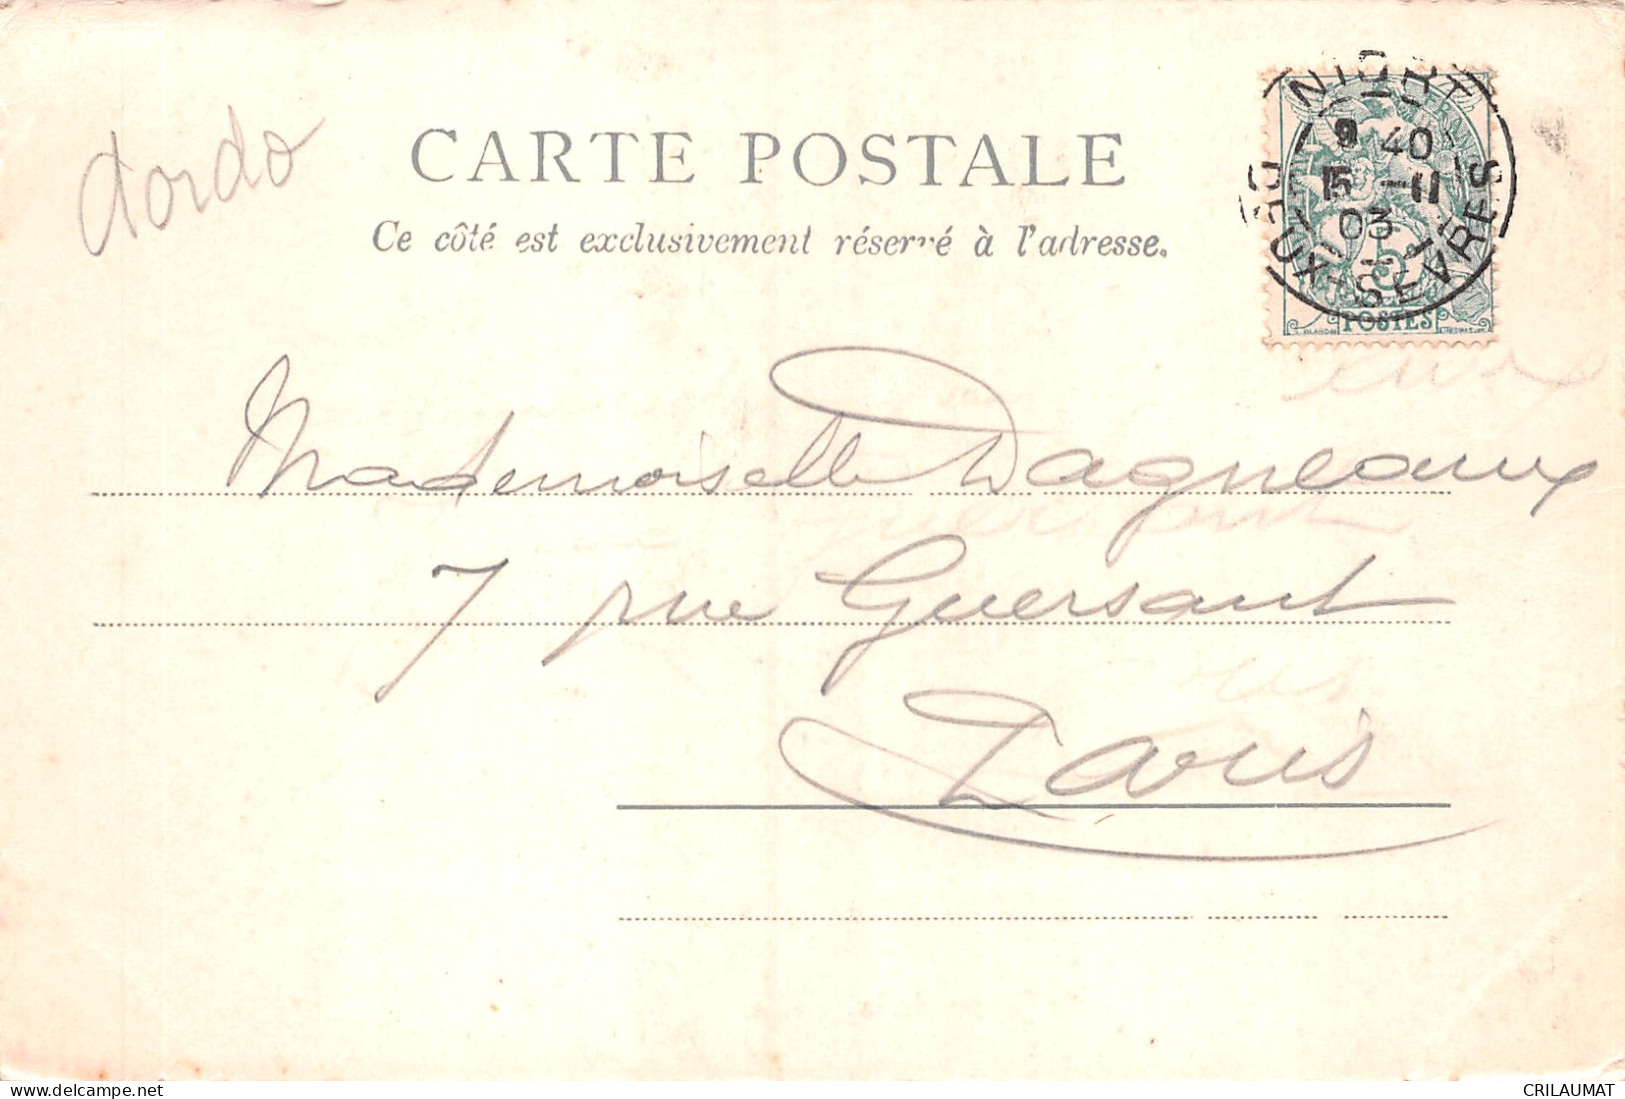 dordo
CARTE POSTALE
Ce côté est exclusivement réservé à l'adresse.
NIORT
9 40
15 -11
03
DEUX-SEVRES
5
POSTES
Mademoiselle Dagneaux
7 rue Guersant
Paris
delcampe.net
CRILAUMAT